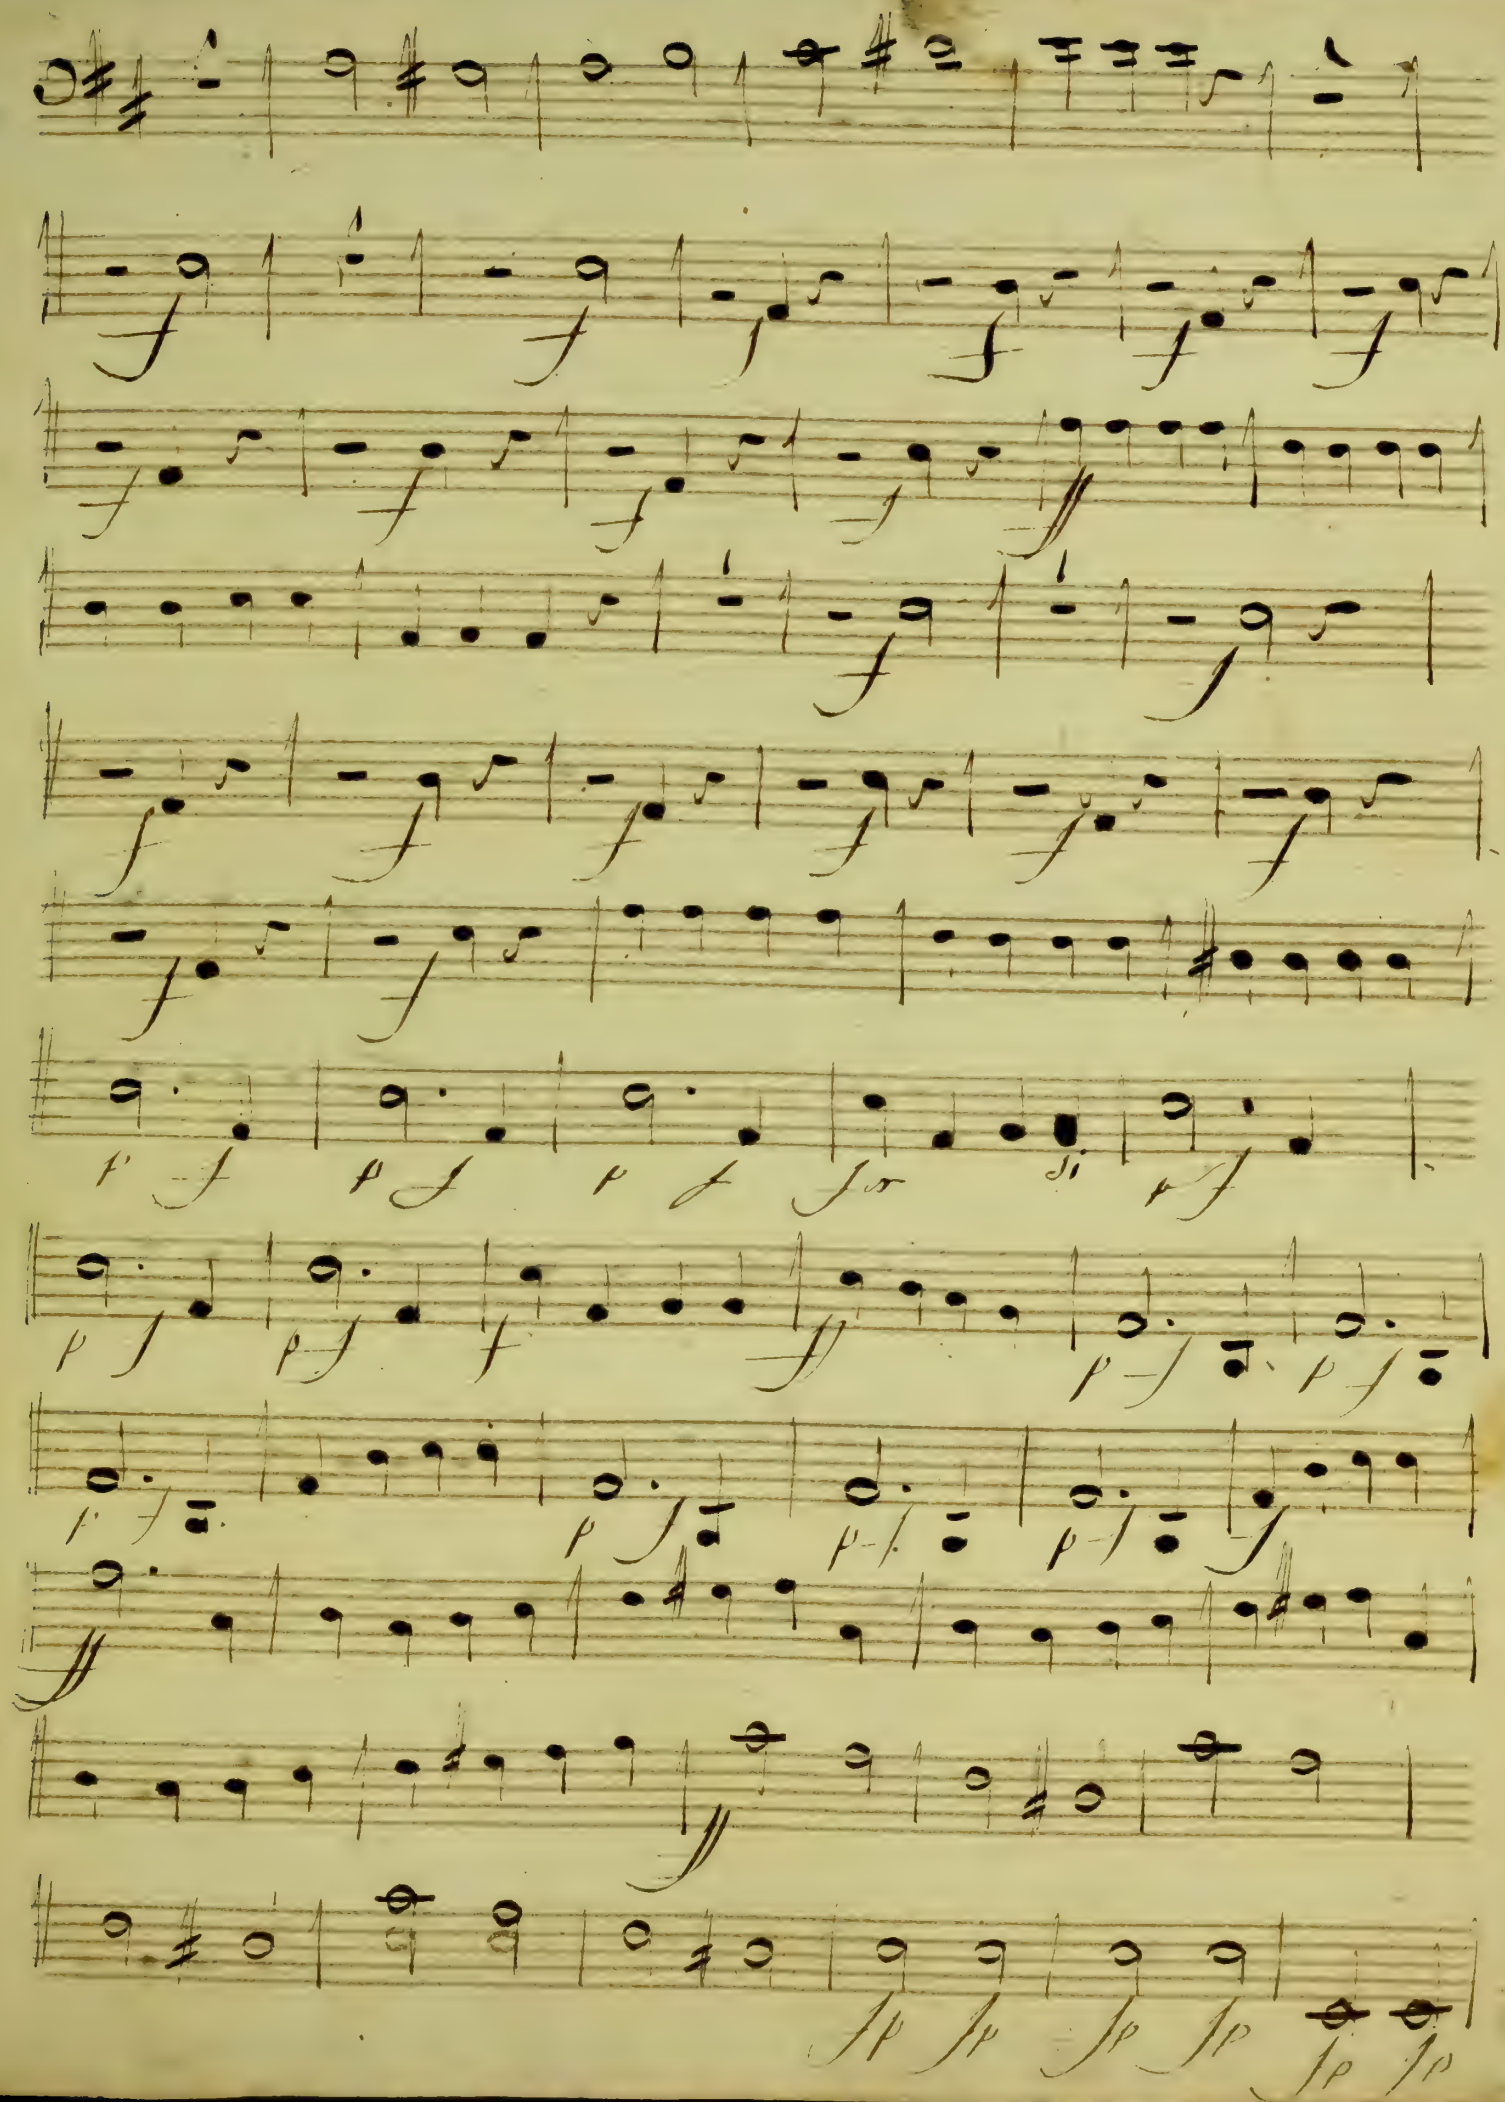 f f f f f f
f f f f ff
f f
f f f f f f
f f
p f p f p f for si p f
p f p f f ff p f p f
p f p f p f p f f
ff
ff
fp fp fp fp fp fp